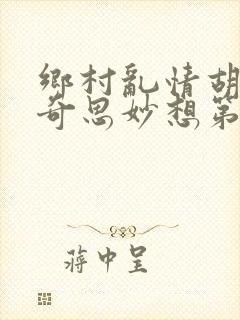 鄉村亂情胡
奇思妙想第
蔣中呈